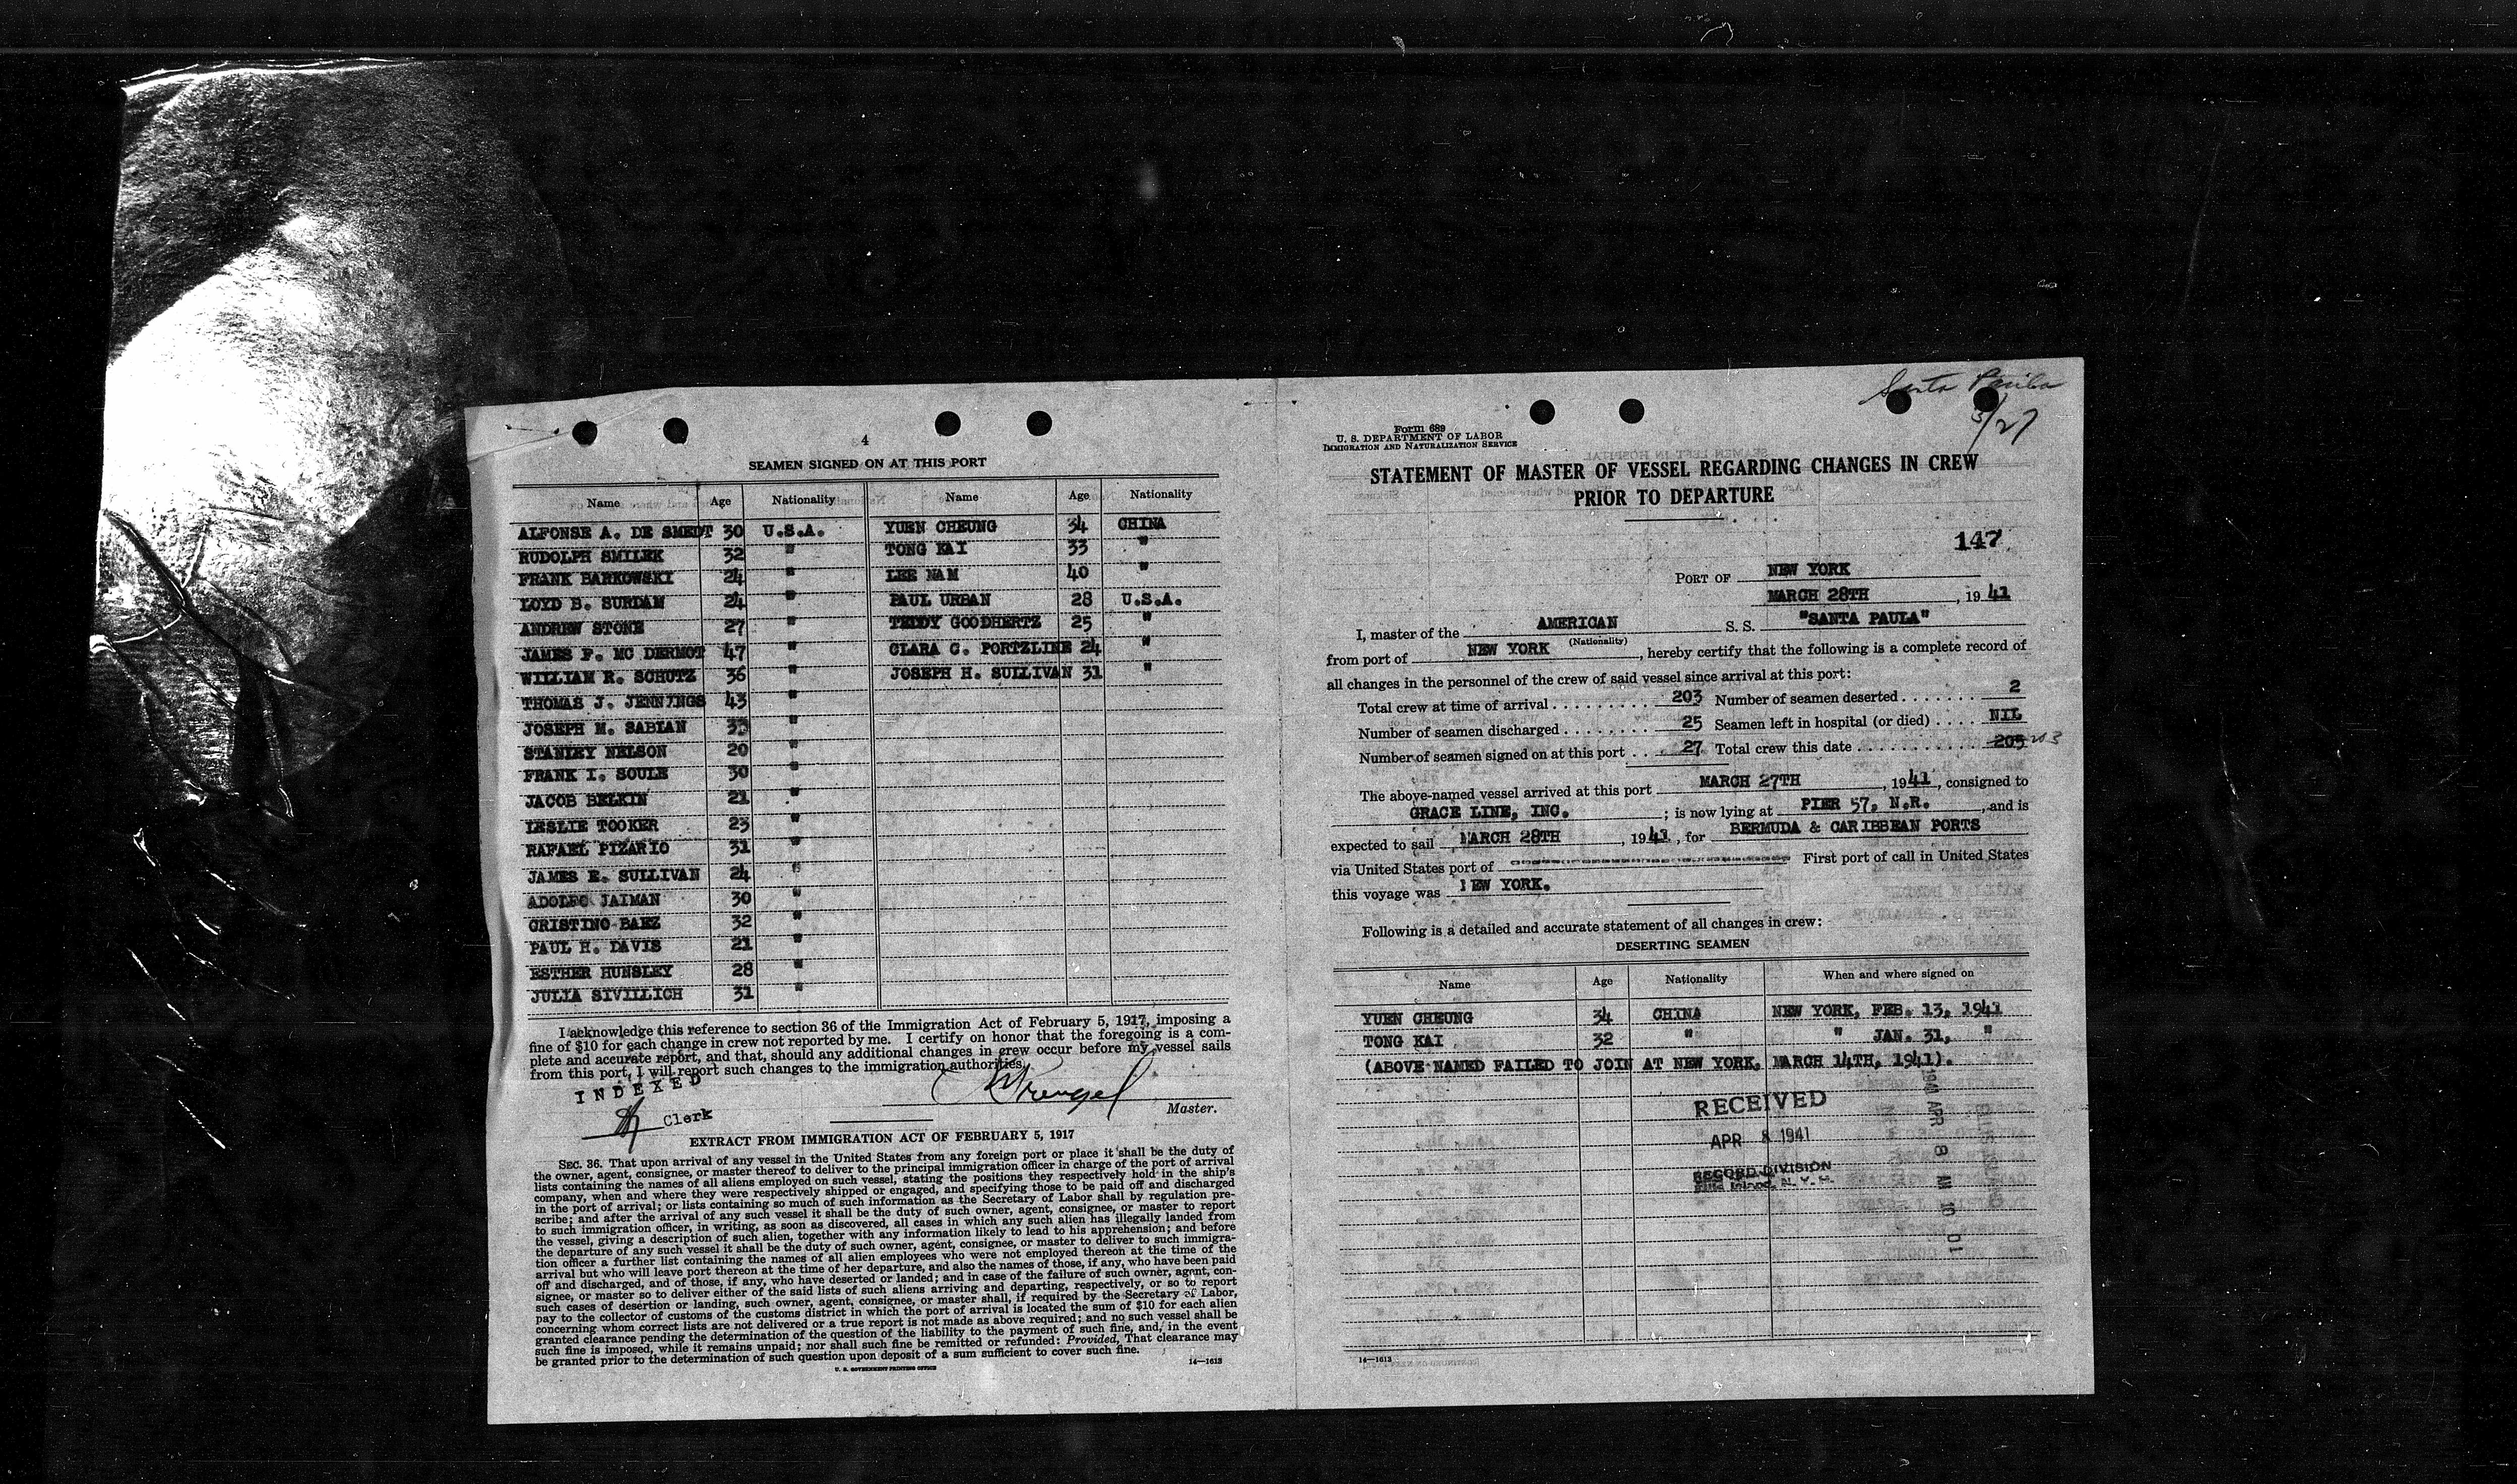 4
SEAMEN SIGNED ON AT THIS PORT
Name Age Nationality Name Age Nationality
ALFONSE A. DE SMEDT 30 U.S.A. YUEN CHEUNG 34 CHINA
RUDOLPH SMILEK 32 " TONG KAI 33 "
FRANK BARKOWSKI 24 " LEE NAM 40 "
LOYD B. SURDAM 24 " PAUL URBAN 28 U.S.A.
ANDREW STONE 27 " TEDDY GOODHERTZ 25 "
JAMES F. MC DERMOT 47 " CLARA C. PORTZLINE 24 "
WILLIAM R. SCHUTZ 36 " JOSEPH H. SULLIVAN 31 "
THOMAS J. JENNINGS 43 "
JOSEPH M. SABIAN 33 "
STANLEY NELSON 20 "
FRANK I. SOULE 30 "
JACOB BELKIN 21 "
LESLIE TOOKER 23 "
RAFAEL PIZARIO 31 "
JAMES E. SULLIVAN 24 "
ADOLFO JAIMAN 30 "
CRISTINO BAEZ 32 "
PAUL H. DAVIS 21 "
ESTHER HUNSLEY 28 "
JULIA SIVILLICH 31 "
I acknowledge this reference to section 36 of the Immigration Act of February 5, 1917, imposing a
fine of $10 for each change in crew not reported by me. I certify on honor that the foregoing is a com-
plete and accurate report, and that, should any additional changes in crew occur before my vessel sails
from this port, I will report such changes to the immigration authorities.
INDEXED
Clerk
Master.
EXTRACT FROM IMMIGRATION ACT OF FEBRUARY 5, 1917
SEC. 36. That upon arrival of any vessel in the United States from any foreign port or place it shall be the duty of
the owner, agent, consignee, or master thereof to deliver to the principal immigration officer in charge of the port of arrival
lists containing the names of all aliens employed on such vessel, stating the positions they respectively hold in the ship's
company, when and where they were respectively shipped or engaged, and specifying those to be paid off and discharged
in the port of arrival; or lists containing so much of such information as the Secretary of Labor shall by regulation pre-
scribe; and after the arrival of any such vessel it shall be the duty of such owner, agent, consignee, or master to report
to such immigration officer, in writing, as soon as discovered, all cases in which any such alien has illegally landed from
the vessel, giving a description of such alien, together with any information likely to lead to his apprehension; and before
the departure of any such vessel it shall be the duty of such owner, agent, consignee, or master to deliver to such immigra-
tion officer a further list containing the names of all alien employees who were not employed thereon at the time of the
arrival but who will leave port thereon at the time of her departure, and also the names of those, if any, who have been paid
off and discharged, and of those, if any, who have deserted or landed; and in case of the failure of such owner, agent, con-
signee, or master so to deliver either of the said lists of such aliens arriving and departing, respectively, or so to report
such cases of desertion or landing, such owner, agent, consignee, or master shall, if required by the Secretary of Labor,
pay to the collector of customs of the customs district in which the port of arrival is located the sum of $10 for each alien
concerning whom correct lists are not delivered or a true report is not made as above required; and no such vessel shall be
granted clearance pending the determination of the question of the liability to the payment of such fine, and, in the event
such fine is imposed, while it remains unpaid; nor shall such fine be remitted or refunded: Provided, That clearance may
be granted prior to the determination of such question upon deposit of a sum sufficient to cover such fine.
U. S. GOVERNMENT PRINTING OFFICE
14—1613
Santa Paula
3/27
Form 689
U. S. DEPARTMENT OF LABOR
IMMIGRATION AND NATURALIZATION SERVICE
STATEMENT OF MASTER OF VESSEL REGARDING CHANGES IN CREW
PRIOR TO DEPARTURE
147
PORT OF NEW YORK
MARCH 28TH, 1941
I, master of the AMERICAN S. S. "SANTA PAULA"
(Nationality)
from port of NEW YORK, hereby certify that the following is a complete record of
all changes in the personnel of the crew of said vessel since arrival at this port:
Total crew at time of arrival 203 Number of seamen deserted 2
Number of seamen discharged 25 Seamen left in hospital (or died) NIL
Number of seamen signed on at this port 27 Total crew this date 205 203
The above-named vessel arrived at this port MARCH 27TH, 1941, consigned to
GRACE LINE, INC.; is now lying at PIER 57, N.R., and is
expected to sail MARCH 28TH, 1941, for BERMUDA & CARIBBEAN PORTS
via United States port of First port of call in United States
this voyage was NEW YORK.
Following is a detailed and accurate statement of all changes in crew:
DESERTING SEAMEN
Name Age Nationality When and where signed on
YUEN CHEUNG 34 CHINA NEW YORK, FEB. 13, 1941
TONG KAI 32 " " JAN. 31, "
(ABOVE NAMED FAILED TO JOIN AT NEW YORK, MARCH 14TH, 1941).
RECEIVED
APR 8 1941
RECORD DIVISION
Ellis Island, N. Y. H.
1941 APR 8 AM 10 01
14—1613